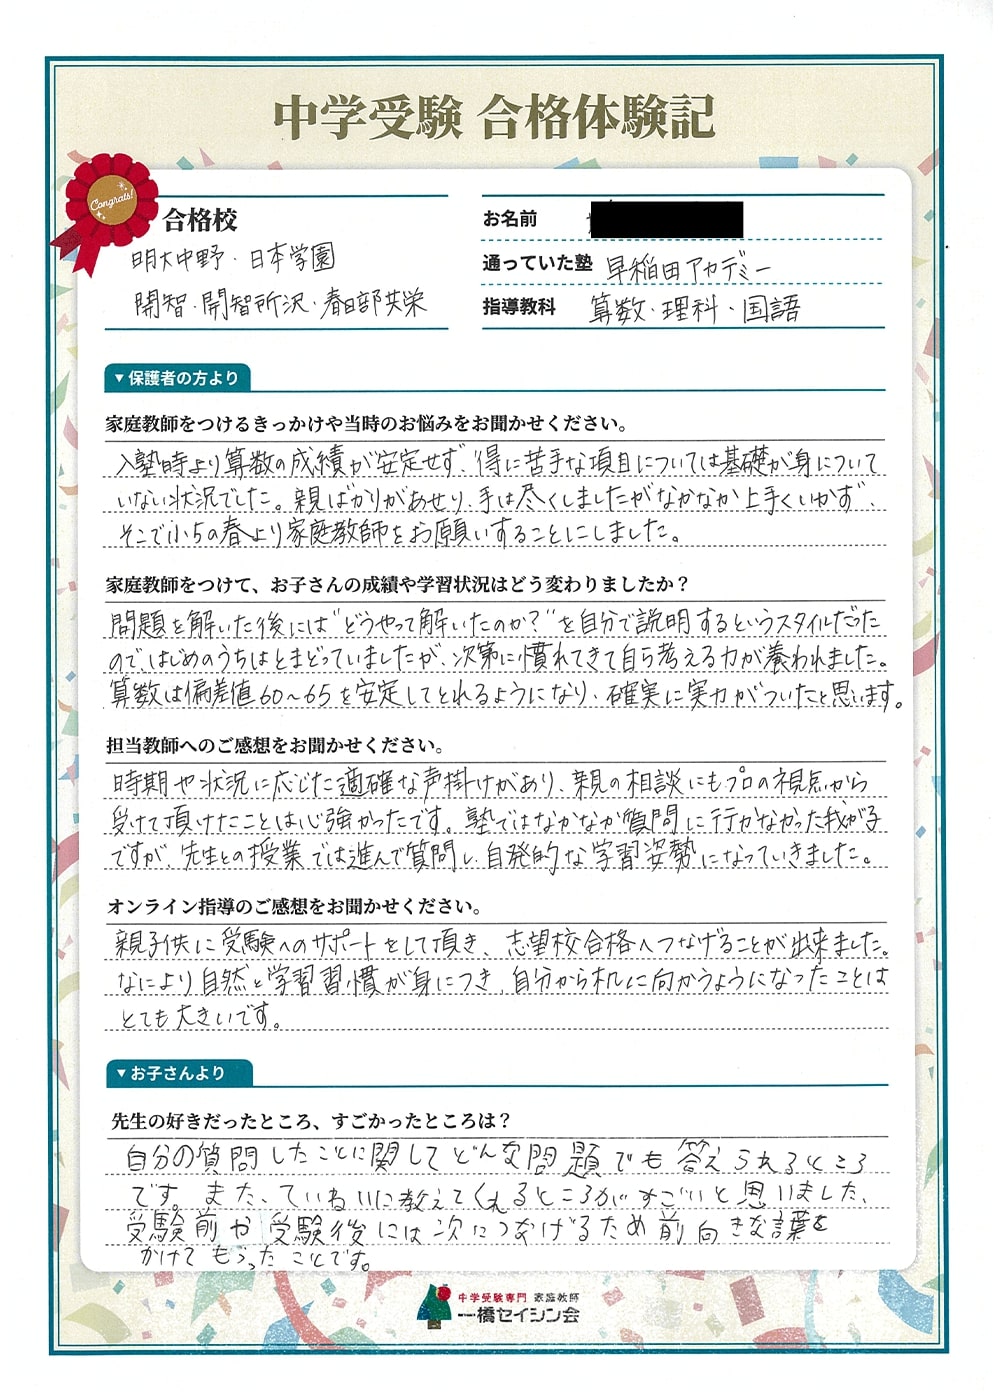 中学受験 合格体験記
Congrats!
合格校
明大中野・日本学園
開智・開智所沢・春日部共栄
お名前
通っていた塾 早稲田アカデミー
指導教科 算数・理科・国語
▼保護者の方より
家庭教師をつけるきっかけや当時のお悩みをお聞かせください。
入塾時より算数の成績が安定せず、得に苦手な項目については基礎が身について
いない状況でした。親ばかりがあせり、手は尽くしましたがなかなか上手くいかず、
そこで小5の春より家庭教師をお願いすることにしました。
家庭教師をつけて、お子さんの成績や学習状況はどう変わりましたか？
問題を解いた後には"どうやって解いたのか？"を自分で説明するというスタイルだった
ので、はじめのうちはとまどっていましたが、次第に慣れてきて自ら考える力が養われました。
算数は偏差値60〜65を安定してとれるようになり、確実に実力がついたと思います。
担当教師へのご感想をお聞かせください。
時期や状況に応じた適確な声掛けがあり、親の相談にもプロの視点から
受けて頂けたことは心強かったです。塾ではなかなか質問に行かなかった我が子
ですが、先生との授業では進んで質問し、自発的な学習姿勢になっていきました。
オンライン指導のご感想をお聞かせください。
親子供に受験へのサポートをして頂き、志望校合格へつなげることが出来ました。
なにより自然と学習習慣が身につき、自分から机に向かうようになったことは
とても大きいです。
▼お子さんより
先生の好きだったところ、すごかったところは？
自分の質問したことに関してどんな問題でも答えられるところ
です。また、ていねいに教えてくれるところがすごいと思いました、
受験前や受験後には次につなげるため前向きな言葉を
かけてもらったことです。
中学受験専門 家庭教師
一橋セイシン会